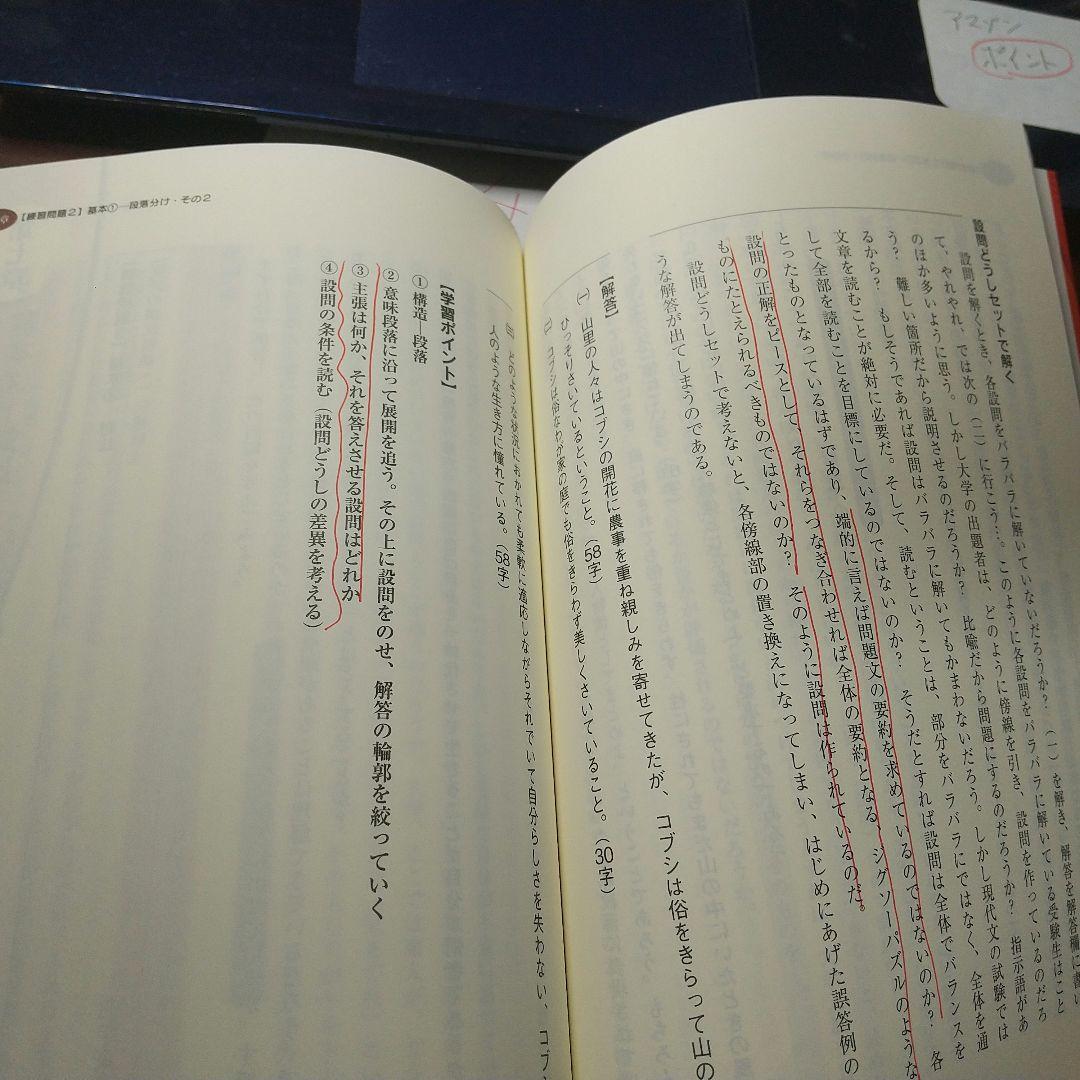 アマゾン
ポイント
設問どうしセットで解く
設問を解くとき、各設問をバラバラに解いていないだろうか? (一)を解き、解答を解答欄に書い
て、やれやれ、では次の(二)に行こう…。このように各設問をバラバラに解いている受験生はこと
のほか多いように思う。しかし大学の出題者は、どのように傍線を引き、設問を作っているのだろ
う? 難しい箇所だから説明させるのだろうか? 比喩だから問題にするのだろうか? 指示語があ
るから? もしそうであれば設問はバラバラに解いてもかまわないだろう。しかし現代文の試験では
文章を読むことが絶対に必要だ。そして、読むということは、部分をバラバラにではなく、全体を通
して全部を読むことを目標にしているのではないのか? そうだとすれば設問は全体でバランスを
とったものとなっているはずであり、端的に言えば問題文の要約を求めているのではないのか? 各
設問の正解をピースとして、それらをつなぎ合わせれば全体の要約となる、ジグソーパズルのような
ものにたとえられるべきものではないのか? そのように設問は作られているのだ。
設問どうしセットで考えないと、各傍線部の置き換えになってしまい、はじめにあげた誤答例の
うな解答が出てしまうのである。
【解答】
(一) 山里の人々はコブシの開花に農事を重ね親しみを寄せてきたが、コブシは俗をきらって山の
ひっそりさいているということ。(58字)
(二) コブシは俗なわが家の庭でも俗をきらわず美しくさいていること。(30字)
(三) どのような状況におかれても柔軟に適応しながらそれでいて自分らしさを失わない、コブシ
人のような生き方に憧れている。(58字)
章 【練習問題2】基本①―段落分け・その2
【学習ポイント】
① 構造―段落
② 意味段落に沿って展開を追う。その上に設問をのせ、解答の輪郭を絞っていく
③ 主張は何か、それを答えさせる設問はどれか
④ 設問の条件を読む(設問どうしの差異を考える)